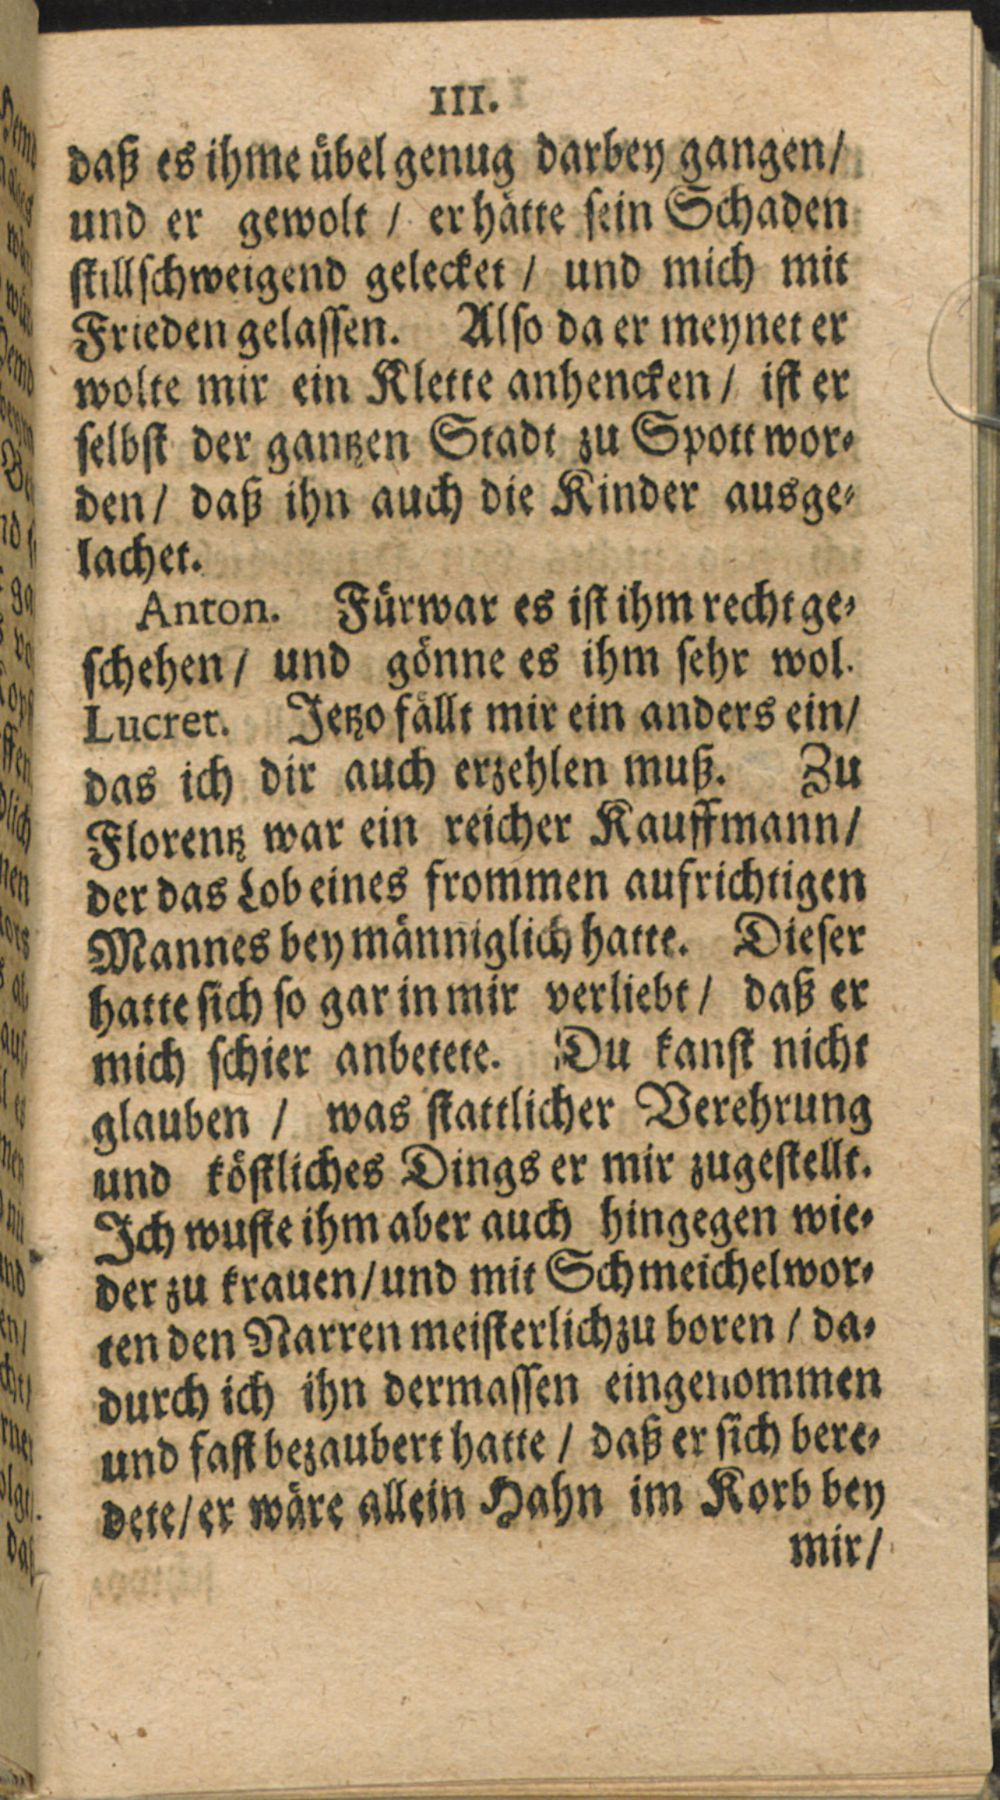 III.
daß es ihme übel genug darbey gangen/
und er gewolt / er hätte sein Schaden
stillschweigend gelecket / und mich mit
Frieden gelassen. Also da er meynet er
wolte mir ein Klette anhencken / ist er
selbst der gantzen Stadt zu Spott wor-
den / daß ihn auch die Kinder ausge-
lachet.
Anton. Fürwar es ist ihm recht ge-
schehen / und gönne es ihm sehr wol.
Lucret. Jetzo fällt mir ein anders ein/
das ich dir auch erzehlen muß. Zu
Florentz war ein reicher Kauffmann/
der das Lob eines frommen aufrichtigen
Mannes bey männiglich hatte. Dieser
hatte sich so gar in mir verliebt / daß er
mich schier anbetete. Du kanst nicht
glauben / was stattlicher Verehrung
und köstliches Dings er mir zugestellt.
Ich wuste ihm aber auch hingegen wie-
der zu krauen/und mit Schmeichelwor-
ten den Narren meisterlich zu boren / da-
durch ich ihn dermassen eingenommen
und fast bezaubert hatte / daß er sich bere-
dete/er wäre allein Hahn im Korb bey
mir/